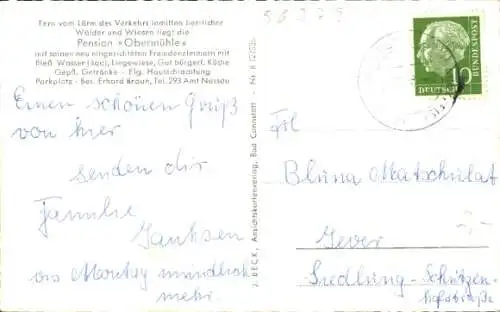 Fern vom Lärm des Verkehrs inmitten herrlicher
Wälder und Wiesen liegt die
Pension »Obermühle«
mit seinen neu eingerichteten Fremdenzimmern mit
fließ. Wasser (kao), Liegewiese, Gut bürgerl. Küche
Gepfl. Getränke - Eig. Hausschlachtung
Parkplatz - Bes. Erhard Braun, Tel. 293 Amt Nassau
Einen schönen Gruß
von hier
senden dir
Familie
Janksen
bis Montag mündlich
mehr.
J. BECK, Ansichtskartenverlag, Bad Cannstatt - Nr. R
DEUTSCHE
BUNDESPOST
Frl
Bluna Matschulat
Jever
Siedlung-Schützen-
hofstraße